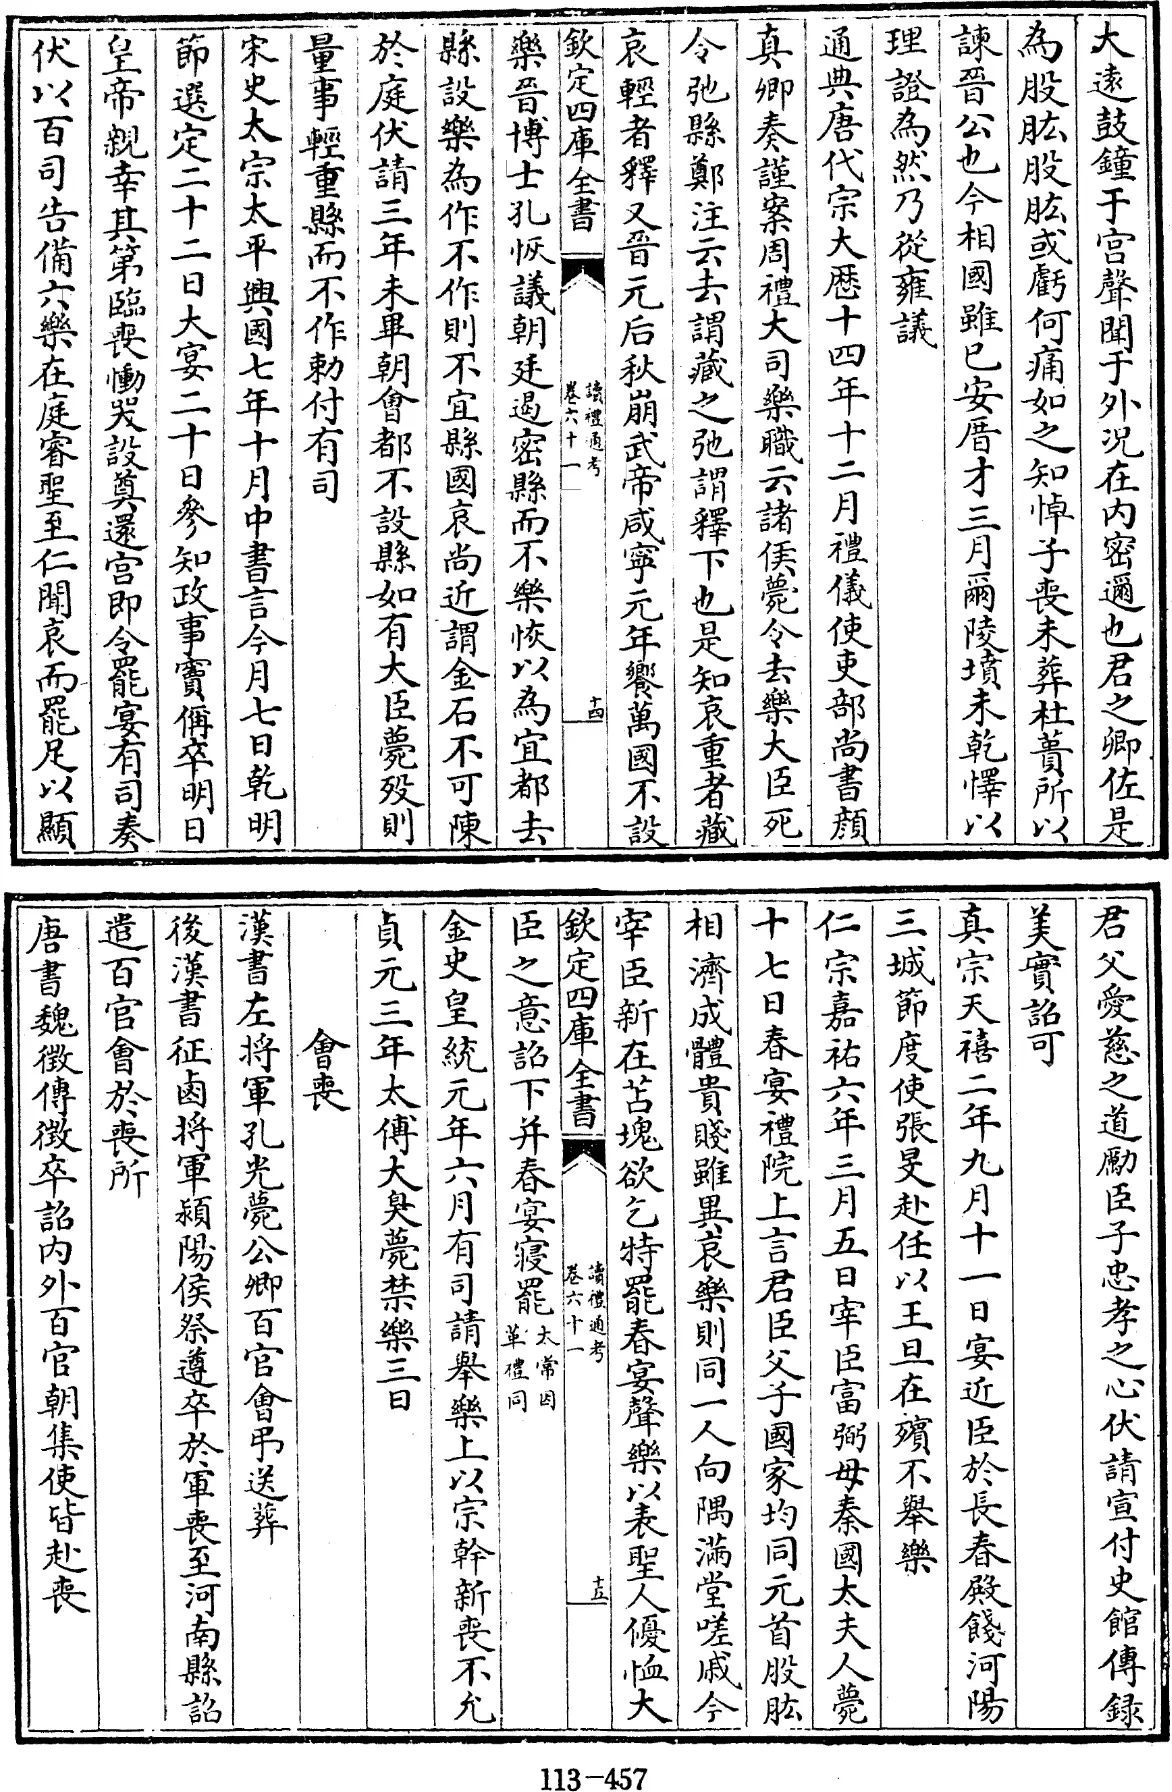 大遠鼓鐘于宫聲聞于外況在内密邇也君之卿佐是
為股肱股肱或虧何痛如之知悼子喪未葬杜蕢所以
諫晉公也今相國雖已安厝才三月爾陵墳未乾懌以
理證為然乃從雍議
通典唐代宗大厯十四年十二月禮儀使吏部尚書顔
真卿奏謹案周禮大司樂職云諸侯薨令去樂大臣死
令弛縣鄭注云去謂藏之弛謂釋下也是知哀重者藏
哀輕者釋又晉元后秋崩武帝咸寧元年饗萬國不設
欽定四庫全書
讀禮通考
卷六十一
十四
樂晉博士孔恢議朝廷遏密縣而不樂恢以為宜都去
縣設樂為作不作則不宜縣國哀尚近謂金石不可陳
於庭伏請三年未畢朝會都不設縣如有大臣薨歿則
量事輕重縣而不作勅付有司
宋史太宗太平興國七年十月中書言今月七日乾明
節選定二十二日大宴二十日參知政事竇偁卒明日
皇帝親幸其第臨喪慟哭設奠還宫即令罷宴有司奏
伏以百司告備六樂在庭睿聖至仁聞哀而罷足以顯
君父愛慈之道勵臣子忠孝之心伏請宣付史館傳録
美實詔可
真宗天禧二年九月十一日宴近臣於長春殿餞河陽
三城節度使張旻赴任以王旦在殯不舉樂
仁宗嘉祐六年三月五日宰臣富弼母秦國太夫人薨
十七日春宴禮院上言君臣父子國家均同元首股肱
相濟成體貴賤雖異哀樂則同一人向隅滿堂嗟戚今
宰臣新在苫塊欲乞特罷春宴聲樂以表聖人優恤大
欽定四庫全書
讀禮通考
卷六十一
十五
臣之意詔下并春宴寢罷太常因
革禮同
金史皇統元年六月有司請舉樂上以宗幹新喪不允
貞元三年太傅大㚖薨禁樂三日
會喪
漢書左将軍孔光薨公卿百官會弔送葬
後漢書征鹵将軍潁陽侯祭遵卒於軍喪至河南縣詔
遣百官會於喪所
唐書魏徴傳徴卒詔内外百官朝集使皆赴喪
113-457